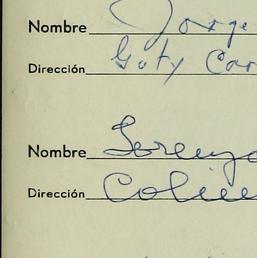 Nombre Jorge
Dirección Goty Car
Nombre Lorenzo
Dirección